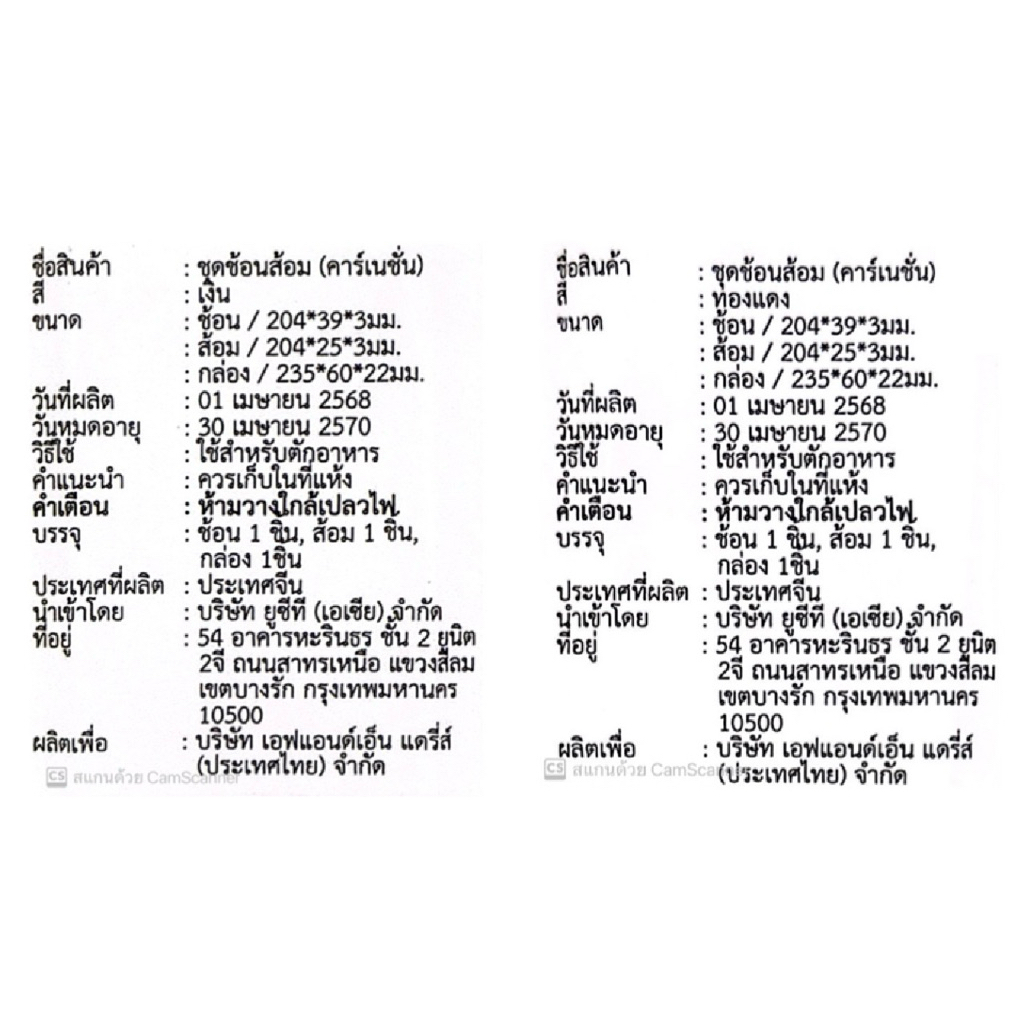 ชื่อสินค้า : ชุดช้อนส้อม (คาร์เนชั่น)
สี : เงิน
ขนาด : ช้อน / 204*39*3มม.
: ส้อม / 204*25*3มม.
: กล่อง / 235*60*22มม.
วันที่ผลิต : 01 เมษายน 2568
วันหมดอายุ : 30 เมษายน 2570
วิธีใช้ : ใช้สำหรับตักอาหาร
คำแนะนำ : ควรเก็บในที่แห้ง
คำเตือน : ห้ามวางใกล้เปลวไฟ
บรรจุ : ช้อน 1 ชิ้น, ส้อม 1 ชิ้น,
กล่อง 1ชิ้น
ประเทศที่ผลิต : ประเทศจีน
นำเข้าโดย : บริษัท ยูซีที (เอเชีย) จำกัด
ที่อยู่ : 54 อาคารหะรินธร ชั้น 2 ยูนิต
2จี ถนนสาทรเหนือ แขวงสีลม
เขตบางรัก กรุงเทพมหานคร
10500
ผลิตเพื่อ : บริษัท เอฟแอนด์เอ็น แดรี่ส์
(ประเทศไทย) จำกัด
CS สแกนด้วย CamScanner
ชื่อสินค้า : ชุดช้อนส้อม (คาร์เนชั่น)
สี : ทองแดง
ขนาด : ช้อน / 204*39*3มม.
: ส้อม / 204*25*3มม.
: กล่อง / 235*60*22มม.
วันที่ผลิต : 01 เมษายน 2568
วันหมดอายุ : 30 เมษายน 2570
วิธีใช้ : ใช้สำหรับตักอาหาร
คำแนะนำ : ควรเก็บในที่แห้ง
คำเตือน : ห้ามวางใกล้เปลวไฟ
บรรจุ : ช้อน 1 ชิ้น, ส้อม 1 ชิ้น,
กล่อง 1ชิ้น
ประเทศที่ผลิต : ประเทศจีน
นำเข้าโดย : บริษัท ยูซีที (เอเชีย) จำกัด
ที่อยู่ : 54 อาคารหะรินธร ชั้น 2 ยูนิต
2จี ถนนสาทรเหนือ แขวงสีลม
เขตบางรัก กรุงเทพมหานคร
10500
ผลิตเพื่อ : บริษัท เอฟแอนด์เอ็น แดรี่ส์
(ประเทศไทย) จำกัด
CS สแกนด้วย CamScanner